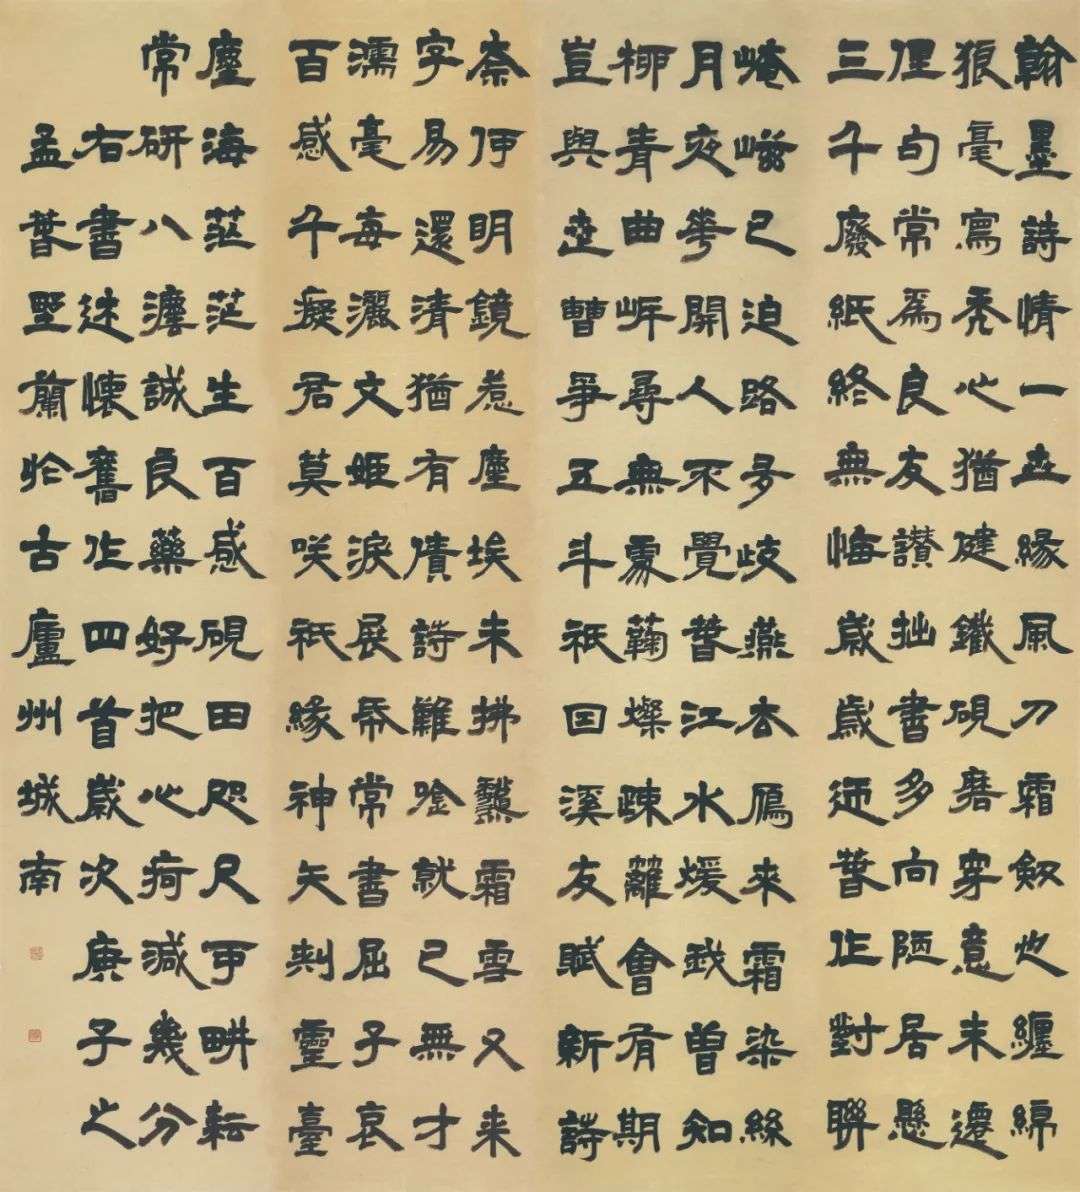 翰墨詩情一世緣風刀霜劒也纏綿
狼毫寫禿心猶健鐵硯磨穿意未遷
俚句常爲良友讃拙書多向陋居懸
三千廢紙終無悔歲歲迎春作對聯
崦嵫已迫路多歧燕去鴈來霜染絲
月夜花開人不覺春江水煖我曾知
柳青曲岸尋無處菊燦疎籬會有期
豈與世曹爭五斗祇因溪友賦新詩
奈何明鏡惹塵埃未拂霜雪又来
字易還清猶有債詩難唫就已無才
濡毫每灑文姬淚展卷常書屈子哀
百感千癡君莫咲祇緣神矢刺靈臺
塵海茫茫生百感硯田咫尺可畊耘
常研八灋誠良藥好把心痾減幾分
右書述懷舊作四首歲次庚子之
孟春於古廬州城南